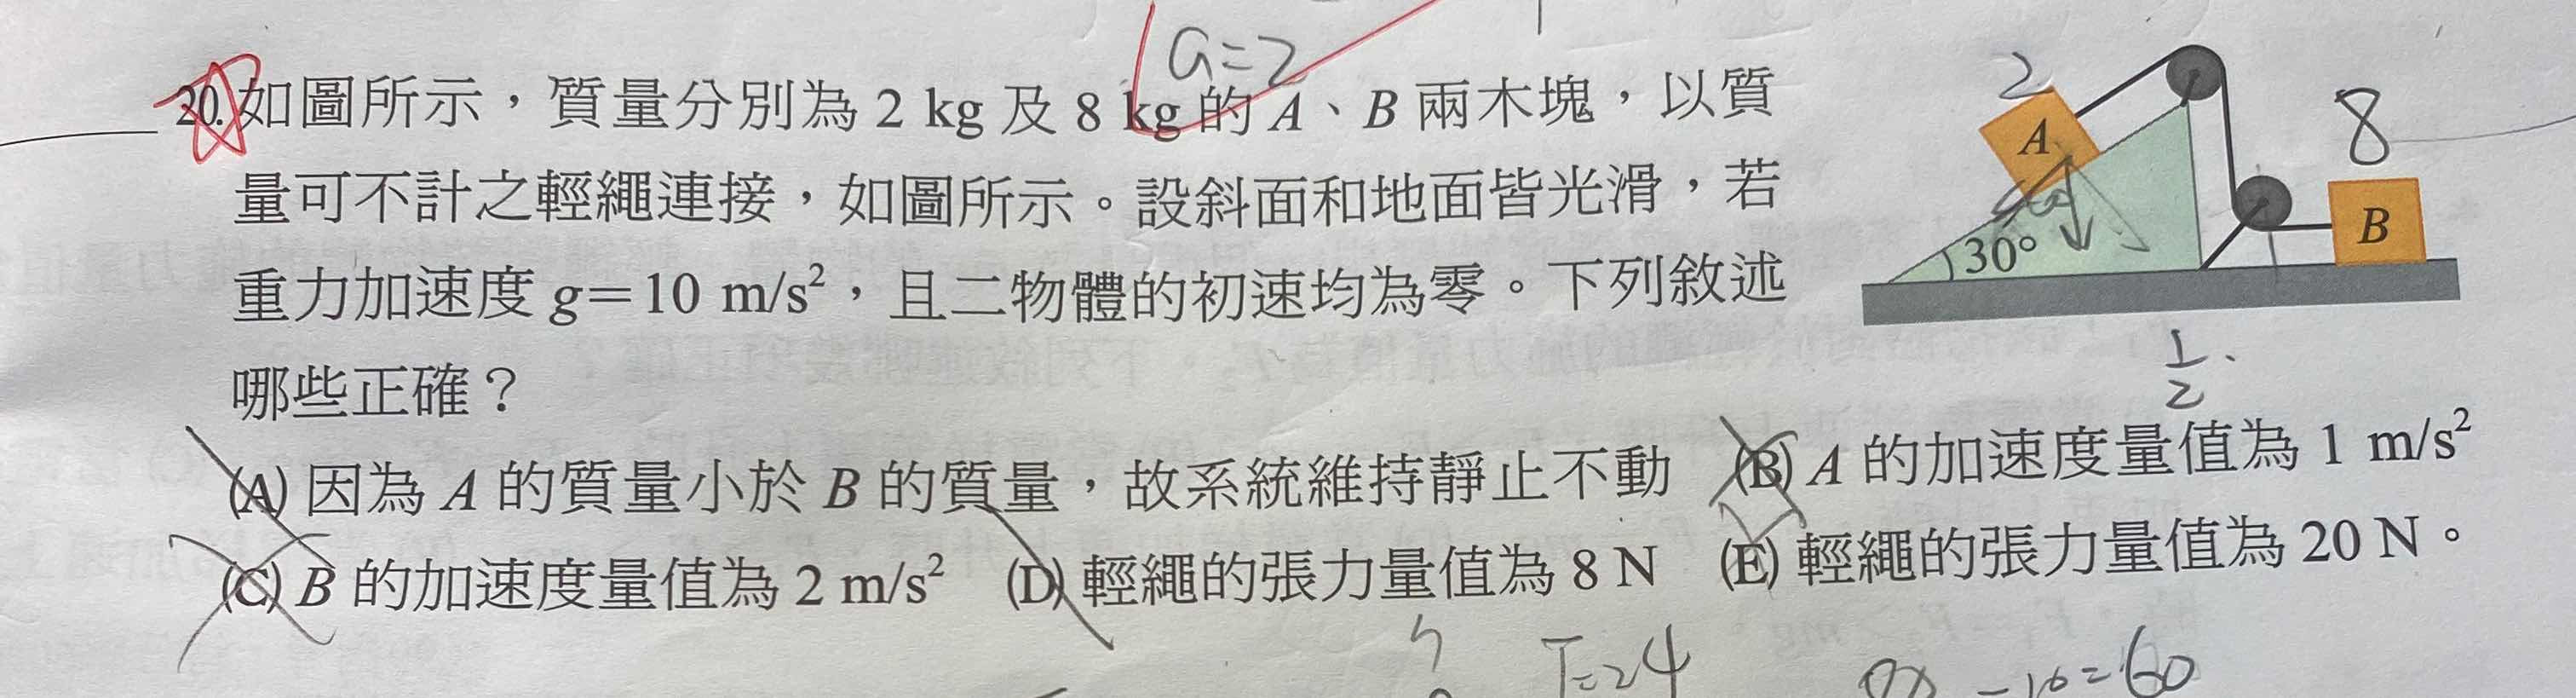 a=2
20.如圖所示，質量分別為 2 kg 及 8 kg 的 A、B 兩木塊，以質
量可不計之輕繩連接，如圖所示。設斜面和地面皆光滑，若
重力加速度 g=10 m/s²，且二物體的初速均為零。下列敘述
哪些正確？
2
A
8
B
30°
1/2
(A) 因為 A 的質量小於 B 的質量，故系統維持靜止不動 (B) A 的加速度量值為 1 m/s²
(C) B 的加速度量值為 2 m/s² (D) 輕繩的張力量值為 8 N (E) 輕繩的張力量值為 20 N。
T=24